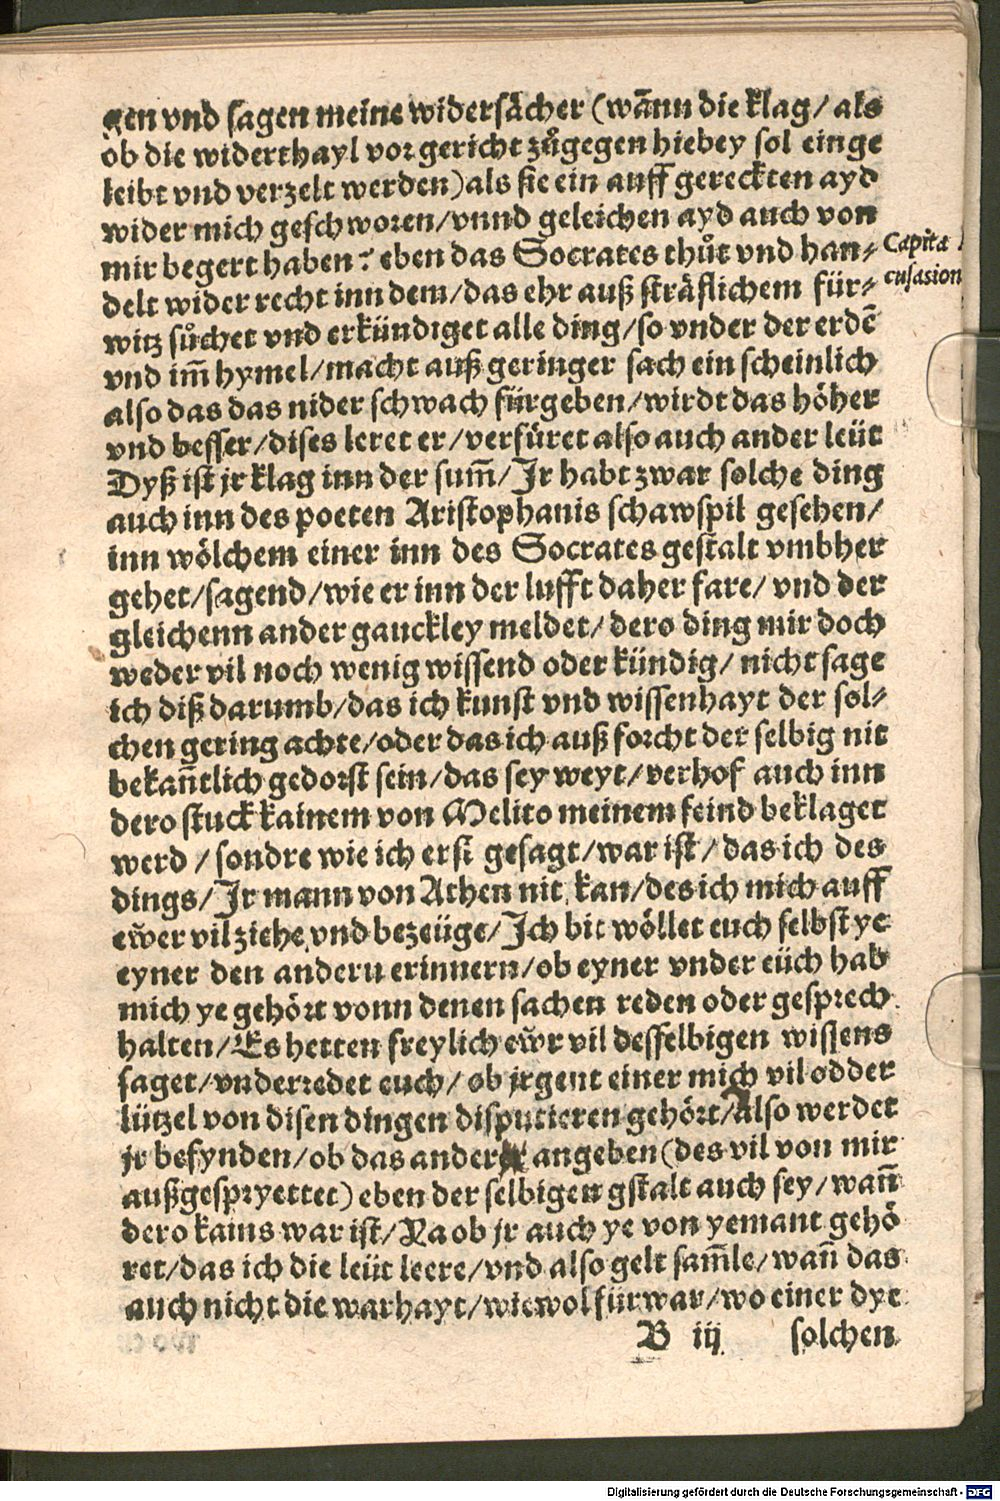 gen vnd sagen meine widersächer (wānn die klag / als
ob die widerthayl vor gericht zůgegen hiebey sol einge
leibt vnd verzelt werden) als sie ein auff gereckten ayd
wider mich geschworen / vnnd geleichen ayd auch von
mir begert haben: eben das Socrates thůt vnd han⸗
delt wider recht inn dem / das ehr auß sträflichem für⸗
witz sůchet vnd erkündiget alle ding / so vnder der erdē
vnd im̄ hymel / macht auß geringer sach ein scheinlich
also das das nider schwach fürgeben / wirdt das höher
vnd besser / dises leret er / verfüret also auch ander leüt
Dyß ist jr klag inn der sum̄ / Jr habt zwar solche ding
auch inn des poeten Aristophanis schawspil gesehen /
inn wölchem einer inn des Socrates gestalt vmbher
gehet / sagend / wie er inn der lufft daher fare / vnd der
gleichenn ander gauckley meldet / dero ding mir doch
weder vil noch wenig wissend oder kündig / nicht sage
ich diß darumb / das ich kunst vnd wissenhayt der sol⸗
chen gering achte / oder das ich auß forcht der selbig nit
bekan̄tlich gedorst sein / das sey weyt / verhof auch inn
dero stuck kainem von Melito meinem feind beklaget
werd / sondre wie ich erst gesagt / war ist / das ich des
dings / Jr mann von Athen nit kan / des ich mich auff
ew̃er vil ziehe vnd bezeüge / Jch bit wöllet euch selbst ye
eyner den andern erinnern / ob eyner vnder eüch hab
mich ye gehört vonn denen sachen reden oder gesprech
halten / Es hetten freylich ew̃r vil desselbigen wissens
saget / vnderredet euch / ob jrgent einer mich vil odder
lützel von disen dingen disputieren gehört / Also werdet
jr befynden / ob das ander angeben (des vil von mir
außgespryettet) eben der selbigen gstalt auch sey / wan̄
dero kains war ist / Na ob jr auch ye von yemant gehö
ret / das ich die leüt leere / vnd also gelt sam̄le / wan̄ das
auch nicht die warhayt / wiewol fürwar / wo einer dye
B iij solchen
Capita
cusasion
Digitalisierung gefördert durch die Deutsche Forschungsgemeinschaft - DFG